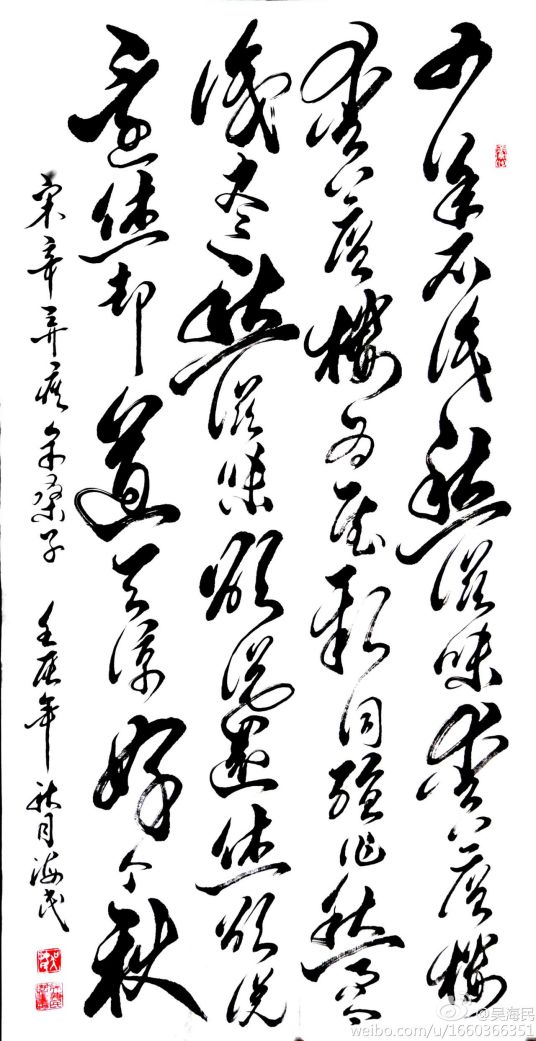 少年不识愁滋味爱上层楼
爱上层楼为赋新词强作愁而今
识尽愁滋味欲说还休欲说
还休却道天凉好个秋
宋辛弃疾采桑子 壬辰年 秋月海民
@吴海民
weibo.com/u/1660366351